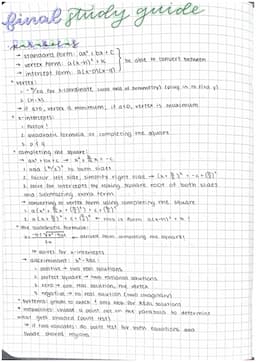 final study guide
→ standard form: ax² + bx + c
→ vertex form: a(x-h)² + k } be able to convert between
→ intercept form: a(x-p)(x-q)
• vertex:
1. -b/2a for x-coordinate (plug in to find y)
2. (h,k)
→ if a>0, vertex is minimum; if a<0, vertex is maximum
• x-intercepts:
1. factor!
2. quadratic formula or completing the square
3. p & q
• completing the square:
→ ax² + bx + c →
1. add to both sides
2. factor left side, simplify right side →
3. solve for intercepts by taking square root of both sides and subtracting extra term
→ converting to vertex form using completing the square:
this is form a(x-h)² + k!
• the quadratic formula:
derived from completing the square!
→ solves for x-intercepts
→ discriminant: b²-4ac:
1. positive → two real solutions
2. perfect square → two rational solutions
3. zero → one real solution, the vertex
4. negative → no real solution (two imaginary)
• systems: graph to check! and look for REAL solutions
• inequalities: choose a point not on the parabola to determine what gets shaded (point test)
→ if two variables: do point test for both equations and shade shared regions